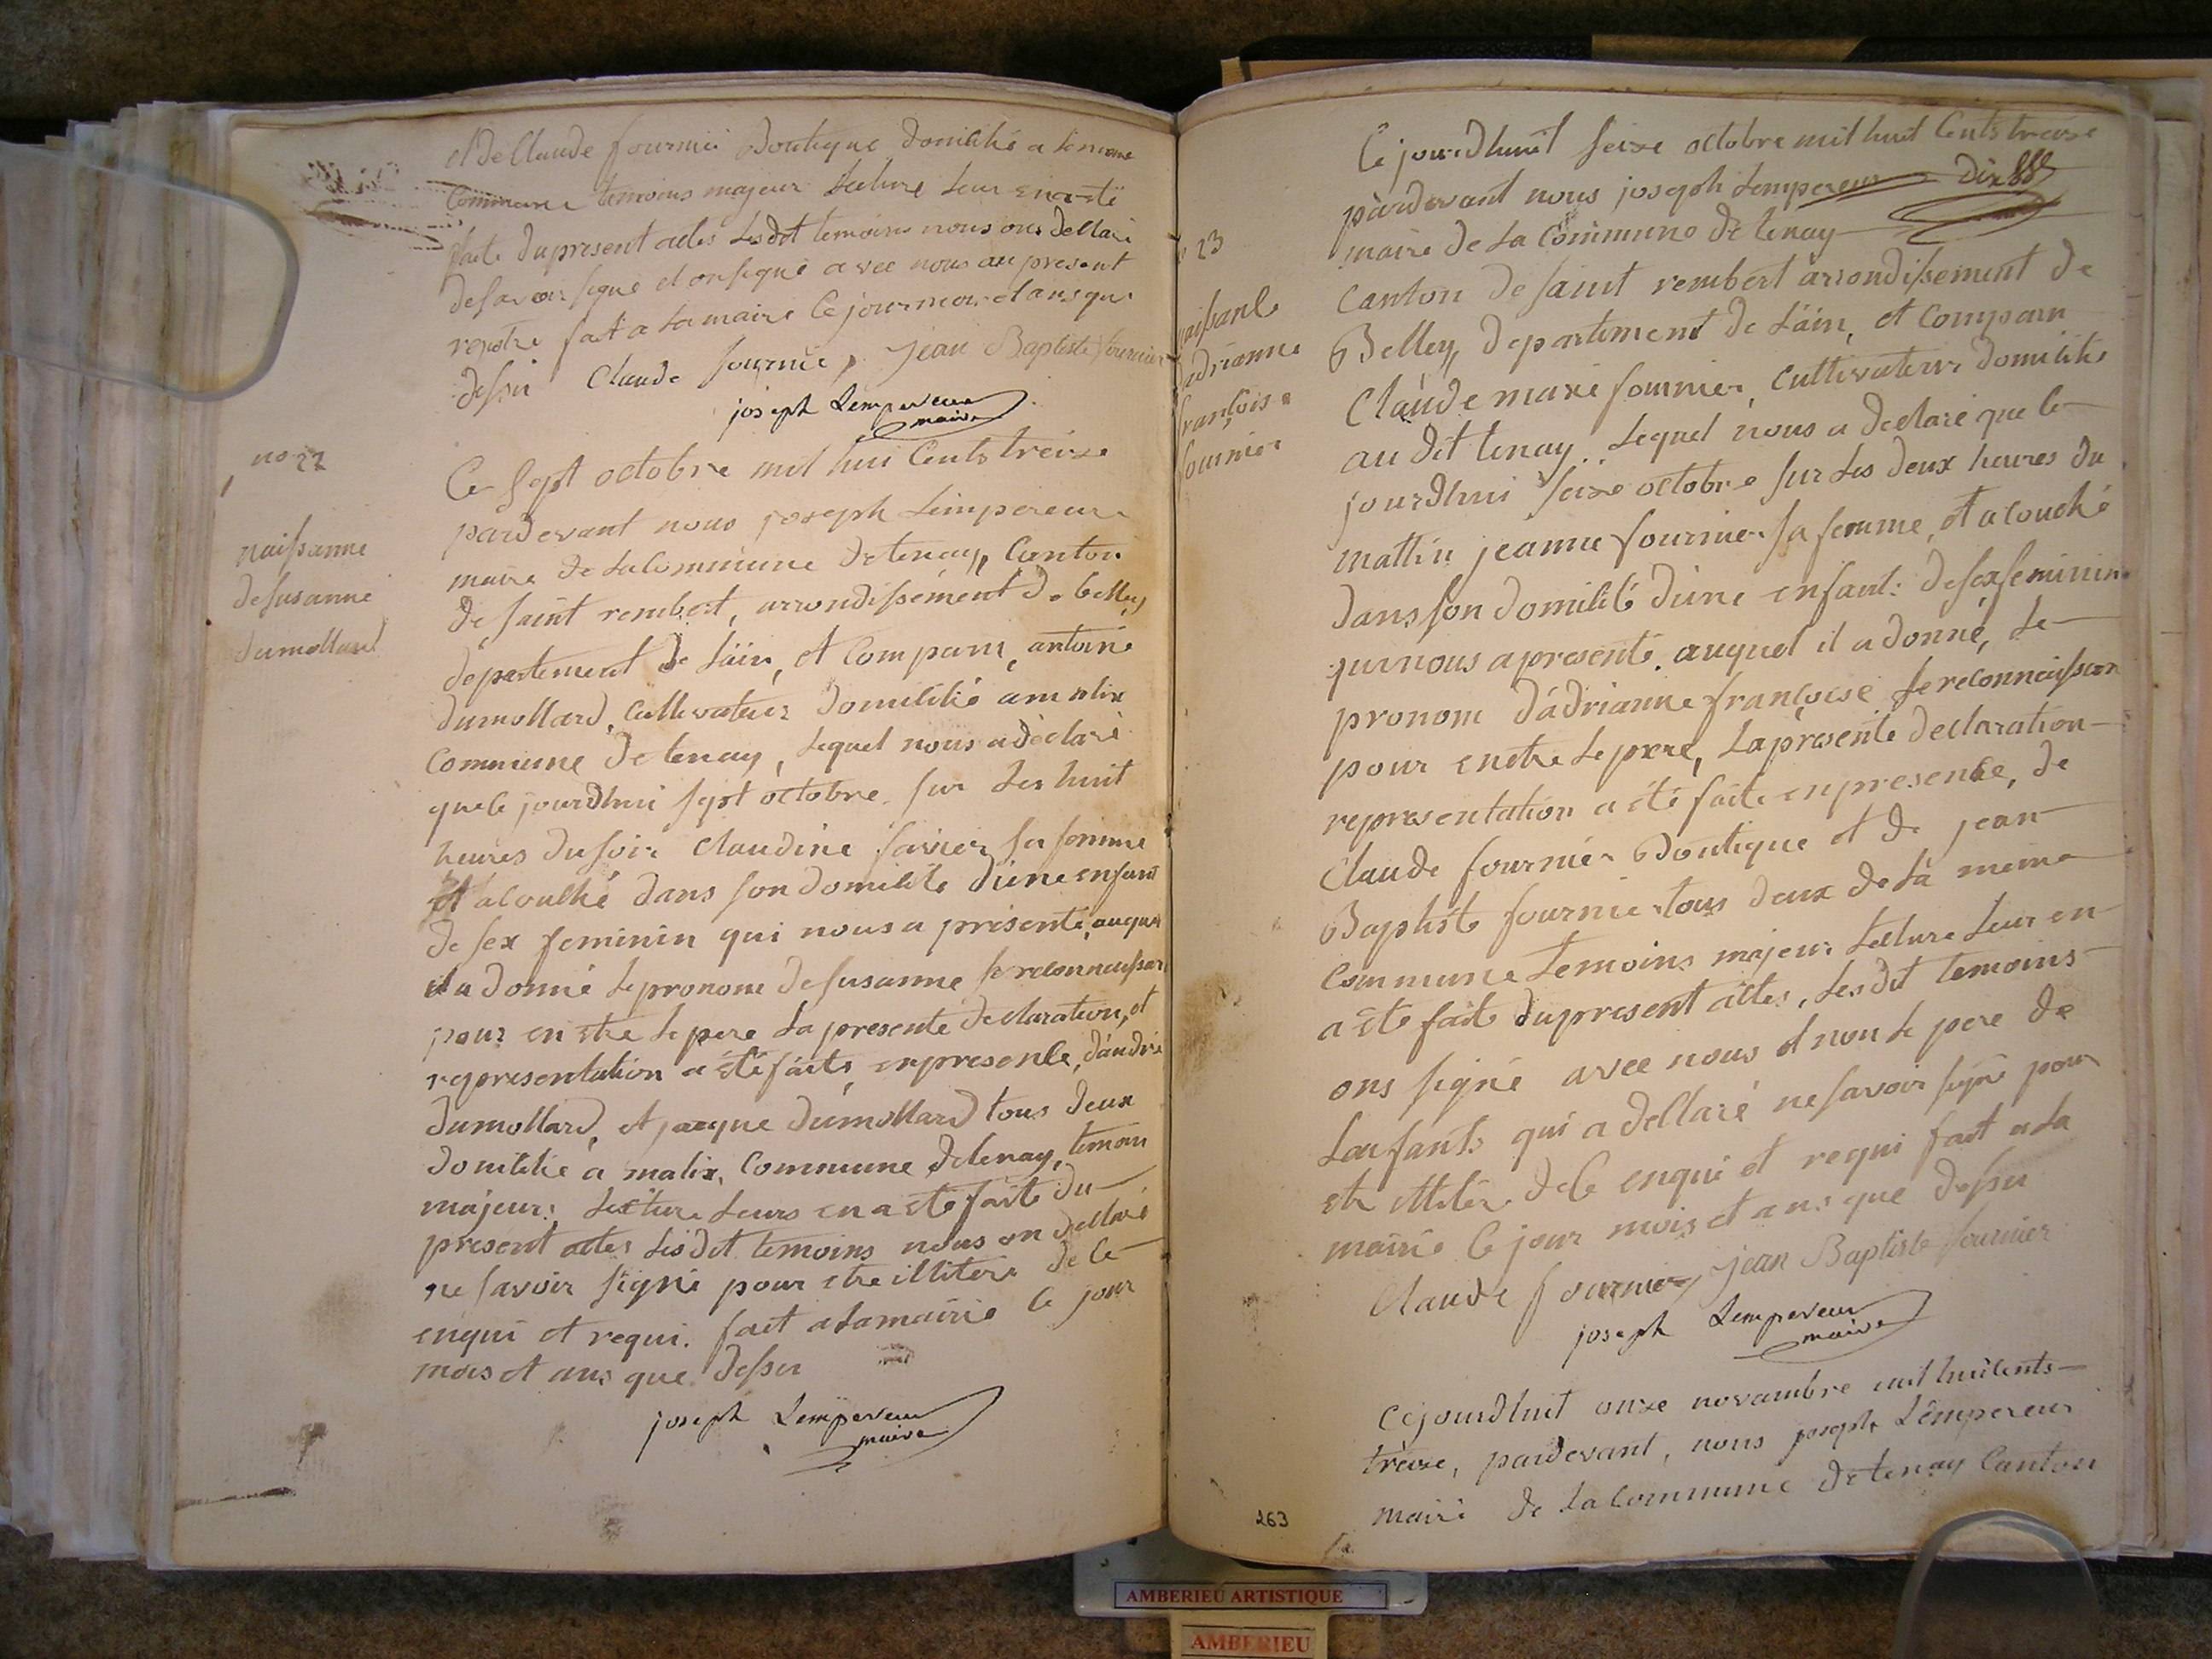 et de Claude fournié Boutique domicilié a la meme
Commune temoins majeur Lecture Leur en a eté
faite du present actes Lesdit temoins nous ons dellaré
de savoir signé et on signé avec nous au present
registre fait a La mairie Ce jour mois et ans que
dessu Claude fournier jean Baptiste fournier
joseph Lempereur
maire
no 22
naissanse
de susanne
dumollard
Ce sept octobre mil hui Cents treize
pardevant nous joseph Lempereur
maire de La Commune de tenay, Canton
de saint rembert, arrondissement de belley
departement de L'ain, et Comparu, antoine
dumollard, Cultivateur domicilié a malix
Commune de tenay, Lequel nous a déclaré
que le jourdhui sept octobre sur Les huit
heures du soir Claudine savier sa femme
et alouché dans son domicile d'une enfant
de sex feminin qui nous a présenté, auquel
il a donné Le pronom de susanne se reconnaissan
pour en etre Le pere La presente declaration, et
representation a été faite, en presence, d'andré
dumollard, et jacque dumollard tous deux
domicilié a malix, Commune de tenay, temoin
majeur, Lecture Leurs en a eté faite du
present actes Lesdit temoins nous on dellaré
ne savoir signé pour etre illiteré de Ce
enqui et requi. fait a La mairie Ce jour
mois et ans que dessu
joseph Lempereur
maire
23
naissance
d'adrianne
françoise
fournier
Ce jourdhuit seize octobre mil huit Cents treize
pardevant nous joseph Lempereur Dix 888
maire de La Commune de tenay
Canton de saint rembert arrondissement de
Belley, departement de L'ain, et Comparu
Claude marie fournier, Cultivateur domicilié
au dit tenay. Lequel nous a declaré que le
jourdhui seize octobre sur Les deux heures du
mattin jeanne fournier sa femme, et acouché
dans son domicilé d'une enfant: de sex feminin
qui nous a presenté. auquel il a donné, Le
pronom d'adrianne françoise se reconnaissan
pour en etre Le pere, La presente declaration
representation a été faite en presence, de
Claude fournier Boutique et de jean
Baptiste fournier tous deux de La meme
Commune temoins majeur Lecture Leur en
a ete faite du present actes, Lesdit temoins
ons signé avec nous et non le pere de
Lenfants qui a dellaré ne savoir signé pour
etre illiteré de Ce enqui et requi fait a La
mairie Ce jour mois et ans que dessu
Claude fournier jean Baptiste fournier
joseph Lempereur
maire
Cejourdhuit onze novambre mil huitcents
treize, pardevant, nous joseph Lempereur
maire de La Commune de tenay Canton
263
AMBERIEU ARTISTIQUE
AMBERIEU